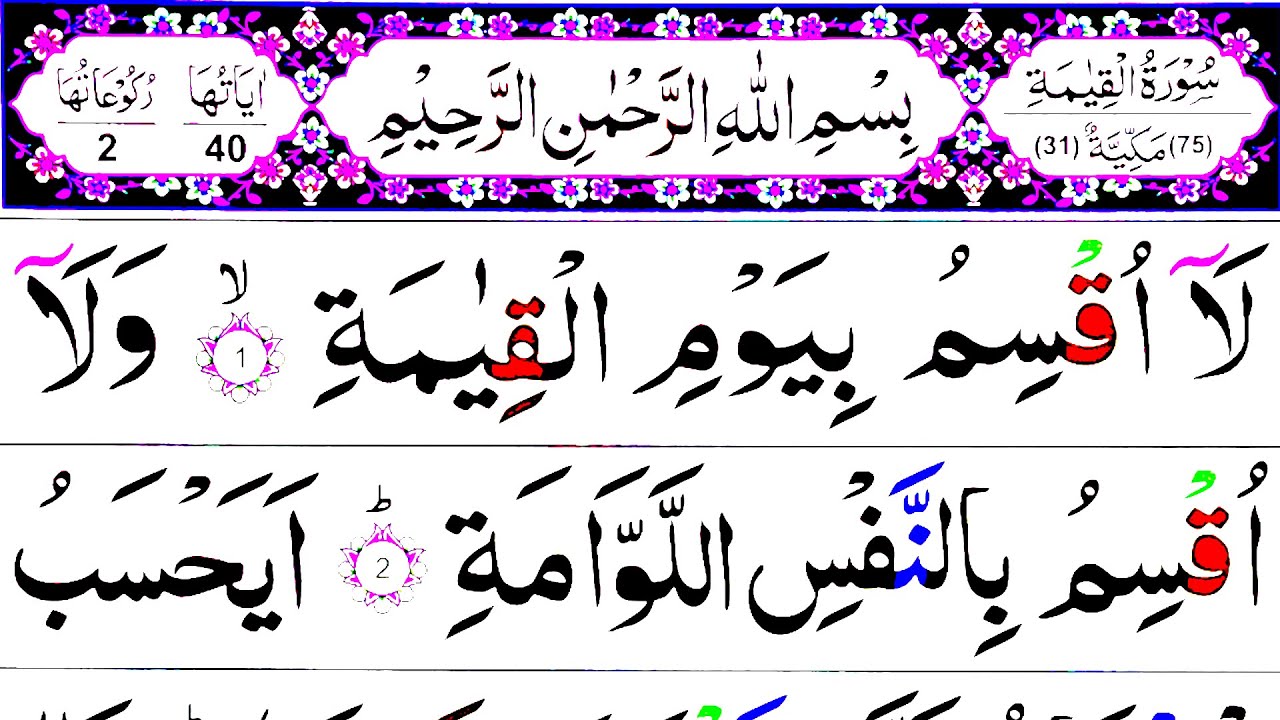 سُوْرَةُ الْقِيٰمَةِ
(75) مَكِّيَّةٌ (31)
بِسْمِ اللّٰهِ الرَّحْمٰنِ الرَّحِيْمِ
اٰيَاتُهَا 40
رُكُوْعَاتُهَا 2
لَاۤ اُقْسِمُ بِيَوْمِ الْقِيٰمَةِ ۙ 1 وَلَاۤ
اُقْسِمُ بِالنَّفْسِ اللَّوَّامَةِ ؕ 2 اَيَحْسَبُ